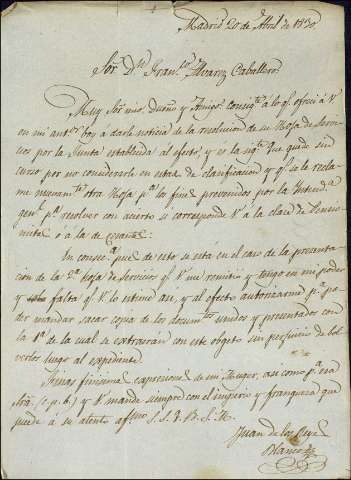 Madrid 20 de Abril de 1830,
Sor. Dn. Franco. Alvarez Caballero.
Muy Sor. mio, Dueño y Amigo: consigte. á lo qe. ofreci á V.
en mi antor. boy á darle noticia de la resolucion de su Hoja de Servi-
cios por la Junta establecida al efecto, y es la sigte. Que quede sin
curso por no considerarle en estado de clasificacion y qe. se le recla-
me nuevamte. otra Hoja pa. los fines prevenidos por la Intenda.
genl. pa. resolver con acierto si corresponde V. á la clase de Pensio-
nista ó á la de cesante:
En consecа. pues de esto se está en el caso de la presenta-
cion de la 2a. hoja de servicios qe. V. me remitió y tengo en mi poder
y falta qe. V. lo estime asi, y al efecto autorizarme pa. po-
der mandar sacar copia de los documtos. unidos y presentados con
la 1a. de la cual se extraeran con este objeto sin perjuicio de bol-
verlos luego al expediente.
finisimas expresiones de mi Muger, asi como pa. esa
Sra. (c. p. b.) y V. mande siempre con el imperio y franqueza que
puede á su atento afmo. S. S. Q. B. S. M.
Juan de los Reyes
Blanco